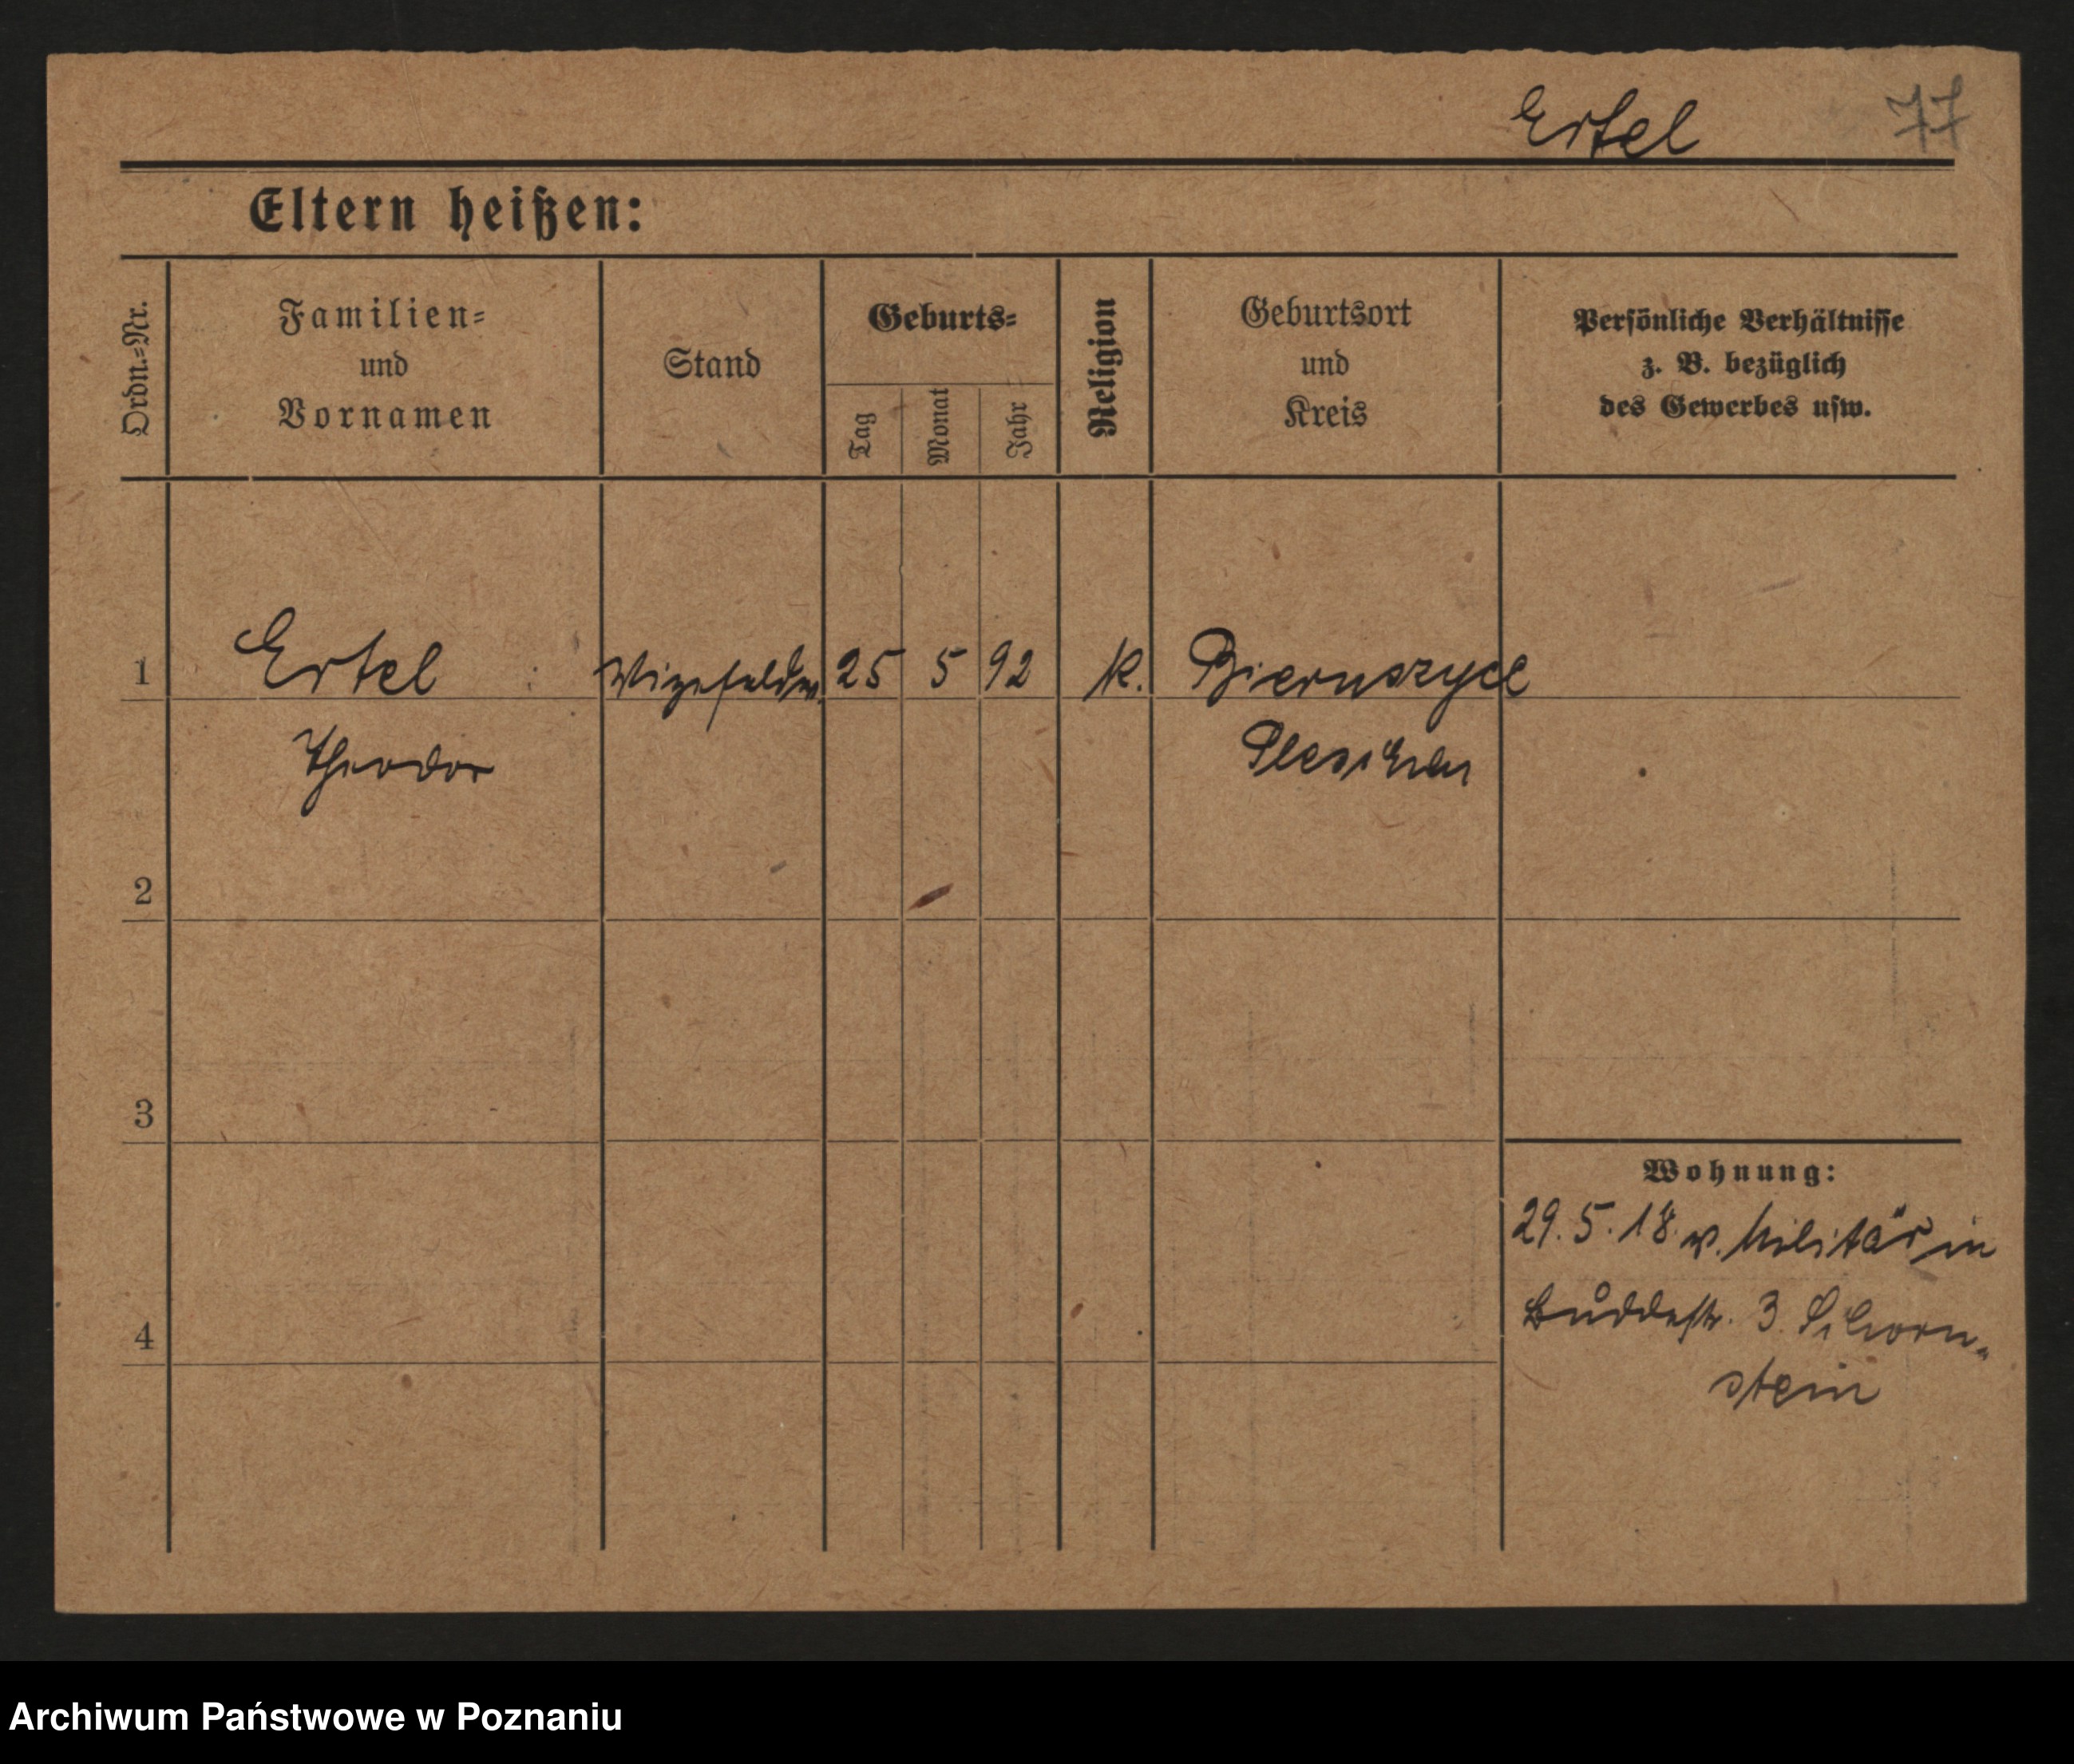 Ertel 77
Eltern heißen:
Ordn.=Nr.
Familien=
und
Vornamen
Stand
Geburts=
Tag
Monat
Jahr
Religion
Geburtsort
und
Kreis
Persönliche Verhältnisse
z. B. bezüglich
des Gewerbes usw.
1 Ertel Vizefeldw. 25 5 92 K.
Theodor Pleschen
2
3
Wohnung:
29.5.18 v. Militär in
Buddestr. 3 Schorn-
4
stein
Archiwum Państwowe w Poznaniu